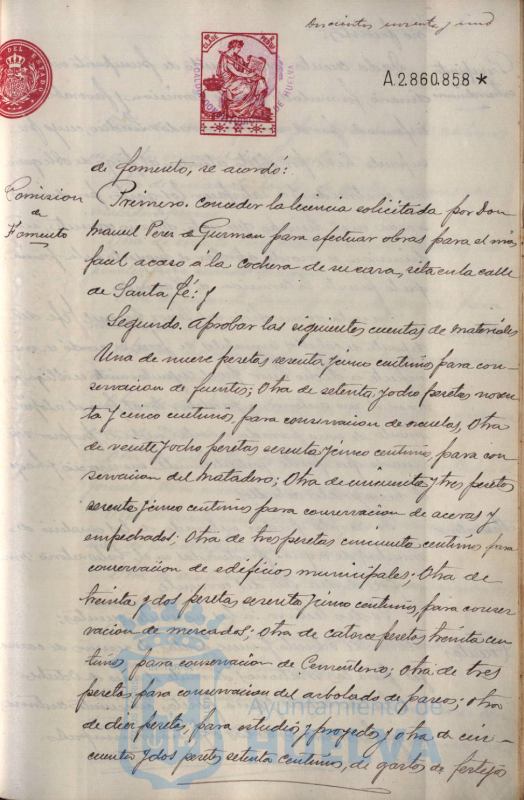 Doscientos noventa y uno
A2.860.858*
de fomento, se acordó:
Comision
de
Fomento
Primero. Conceder la licencia solicitada por Don
Manuel Perez de Guzman para efectuar obras para el mas
facil acceso á la cochera de su casa, sita en la calle
de Santa Fé: y
Segundo. Aprobar las siguientes cuentas de materiales
Una de nueve pesetas sesenta y cinco centimos para con-
servacion de fuentes; Otra de setenta y ocho pesetas noven-
ta y cinco centimos, para conservacion de escuelas, Otra
de veinte y ocho pesetas sesenta y cinco centimos, para con
servacion del Matadero; Otra de cincuenta y tres pesetas
sesenta y cinco centimos para conservacion de aceras y
empedrados; Otra de tres pesetas cincuenta centimos para
conservacion de edificios municipales; Otra de
treinta y dos pesetas sesenta y cinco centimos, para conser
vacion de mercados; otra de catorce pesetas treinta cen
timos, para conservacion de Cementerio; otra de tres
pesetas para conservacion del arbolado de paseos; otra
de diez pesetas, para estudios y proyectos y otra de cin-
cuenta y dos pesetas setenta centimos, de gastos de festejos
Ayuntamiento de
HUELVA